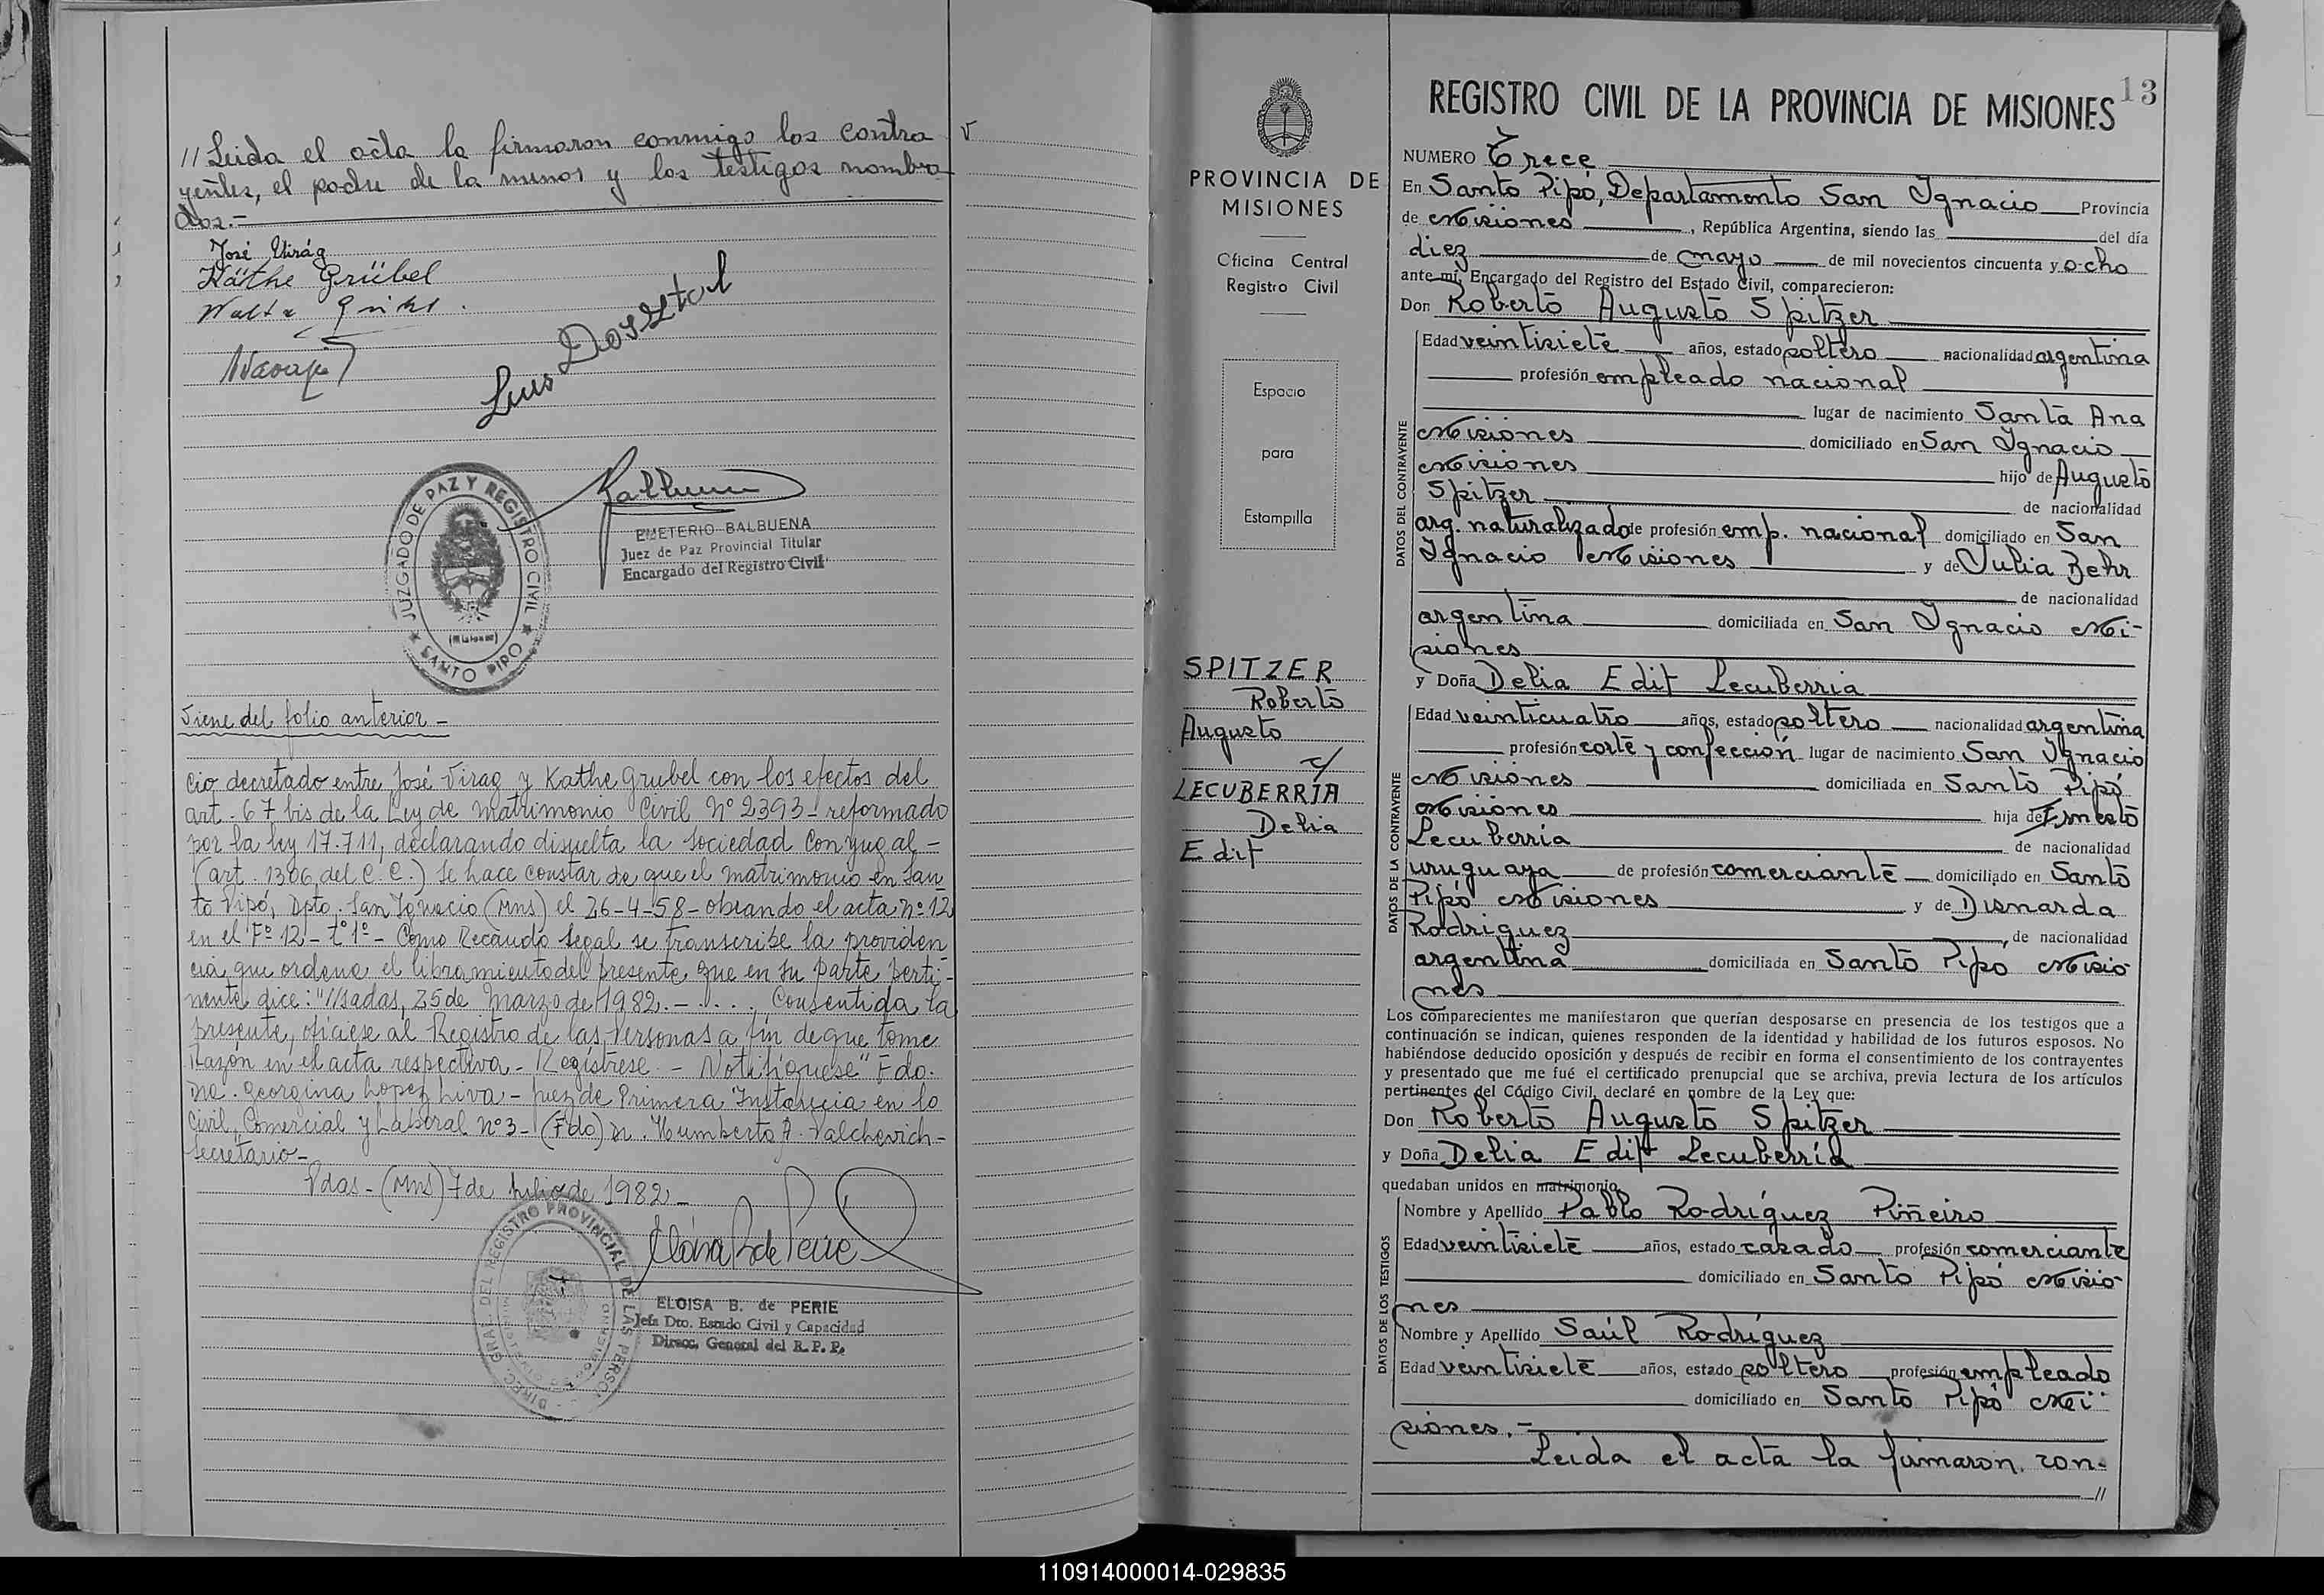 // Leida el acta la firmaron conmigo los contra
yentes, el padre de la menor y los testigos nombra
dos.-
José Virág
Käthe Grübel
Luis Dorsztal
JUZGADO DE PAZ Y REGISTRO CIVIL
(Misiones)
SANTO PIPO
EMETERIO BALBUENA
Juez de Paz Provincial Titular
Encargado del Registro Civil
Viene del folio anterior -
cio decretado entre José Virag y Kathe Grubel con los efectos del
art. 67 bis de la Ley de Matrimonio Civil Nº 2393 - reformado
por la ley 17.711, declarando disuelta la Sociedad Conyugal -
(art. 1306 del C.C.) Se hace constar de que el matrimonio en San
to Pipó, Dpto. San Ignacio (Mns) el 26-4-58 - obrando el acta nº 12
en el Fº 12 - tº 1º - Como Recaudo Legal se transcribe la providen
cia que ordena el libramiento del presente que en su parte perti-
nente dice: "//sadas, 25 de Marzo de 1982. - .... Consentida la
presente, ofíciese al Registro de las Personas a fin de que tome
Razón en el acta respectiva - Regístrese - Notifíquese" Fdo.
Dra. Georgina Lopez Liva - Juez de Primera Instancia en lo
Civil, Comercial y Laboral nº 3 - (Fdo) Dr. Humberto A. Valchevich -
Secretario -
Pdas - (Mns) 7 de Julio de 1982 -
DIREC. GRAL DEL REGISTRO PROVINCIAL DE LAS PERSO
ELOISA B. de PERIE
Jefa Dto. Estado Civil y Capacidad
Direcc. General del R. P. P.
PROVINCIA DE
MISIONES
Oficina Central
Registro Civil
Espacio
para
Estampilla
SPITZER
Roberto
Augusto
c/
LECUBERRÍA
Delia
Edit
13
REGISTRO CIVIL DE LA PROVINCIA DE MISIONES
NUMERO Trece
En Santo Pipó, Departamento San Ignacio Provincia
de Misiones, República Argentina, siendo las del día
diez de mayo de mil novecientos cincuenta y ocho
ante mi, Encargado del Registro del Estado Civil, comparecieron:
Don Roberto Augusto Spitzer
DATOS DEL CONTRAYENTE
Edad veintisiete años, estado soltero nacionalidad argentina
profesión empleado nacional
lugar de nacimiento Santa Ana
Misiones domiciliado en San Ignacio
Misiones hijo de Augusto
Spitzer de nacionalidad
arg. naturalizado de profesión emp. nacional domiciliado en San
Ignacio Misiones y de Julia Behr
de nacionalidad
argentina domiciliada en San Ignacio Mi-
siones
y Doña Delia Edit Lecuberria
DATOS DE LA CONTRAYENTE
Edad veinticuatro años, estado soltero nacionalidad argentina
profesión corte y confección lugar de nacimiento San Ignacio
Misiones domiciliada en Santo Pipó
Misiones hija de Ernesto
Lecuberria de nacionalidad
uruguaya de profesión comerciante domiciliado en Santo
Pipó Misiones y de Dismarda
Rodriguez, de nacionalidad
argentina domiciliada en Santo Pipó Misio
nes
Los comparecientes me manifestaron que querían desposarse en presencia de los testigos que a
continuación se indican, quienes responden de la identidad y habilidad de los futuros esposos. No
habiéndose deducido oposición y después de recibir en forma el consentimiento de los contrayentes
y presentado que me fué el certificado prenupcial que se archiva, previa lectura de los artículos
pertinentes del Código Civil, declaré en nombre de la Ley que:
Don Roberto Augusto Spitzer
y Doña Delia Edit Lecuberría
quedaban unidos en matrimonio.
DATOS DE LOS TESTIGOS
Nombre y Apellido Pablo Rodríguez Piñeiro
Edad veintisiete años, estado casado profesión comerciante
domiciliado en Santo Pipó Misio
nes
Nombre y Apellido Saúl Rodríguez
Edad veintisiete años, estado soltero profesión empleado
domiciliado en Santo Pipó Mi-
siones.-
Leida el acta la firmaron con-
//
110914000014-029835